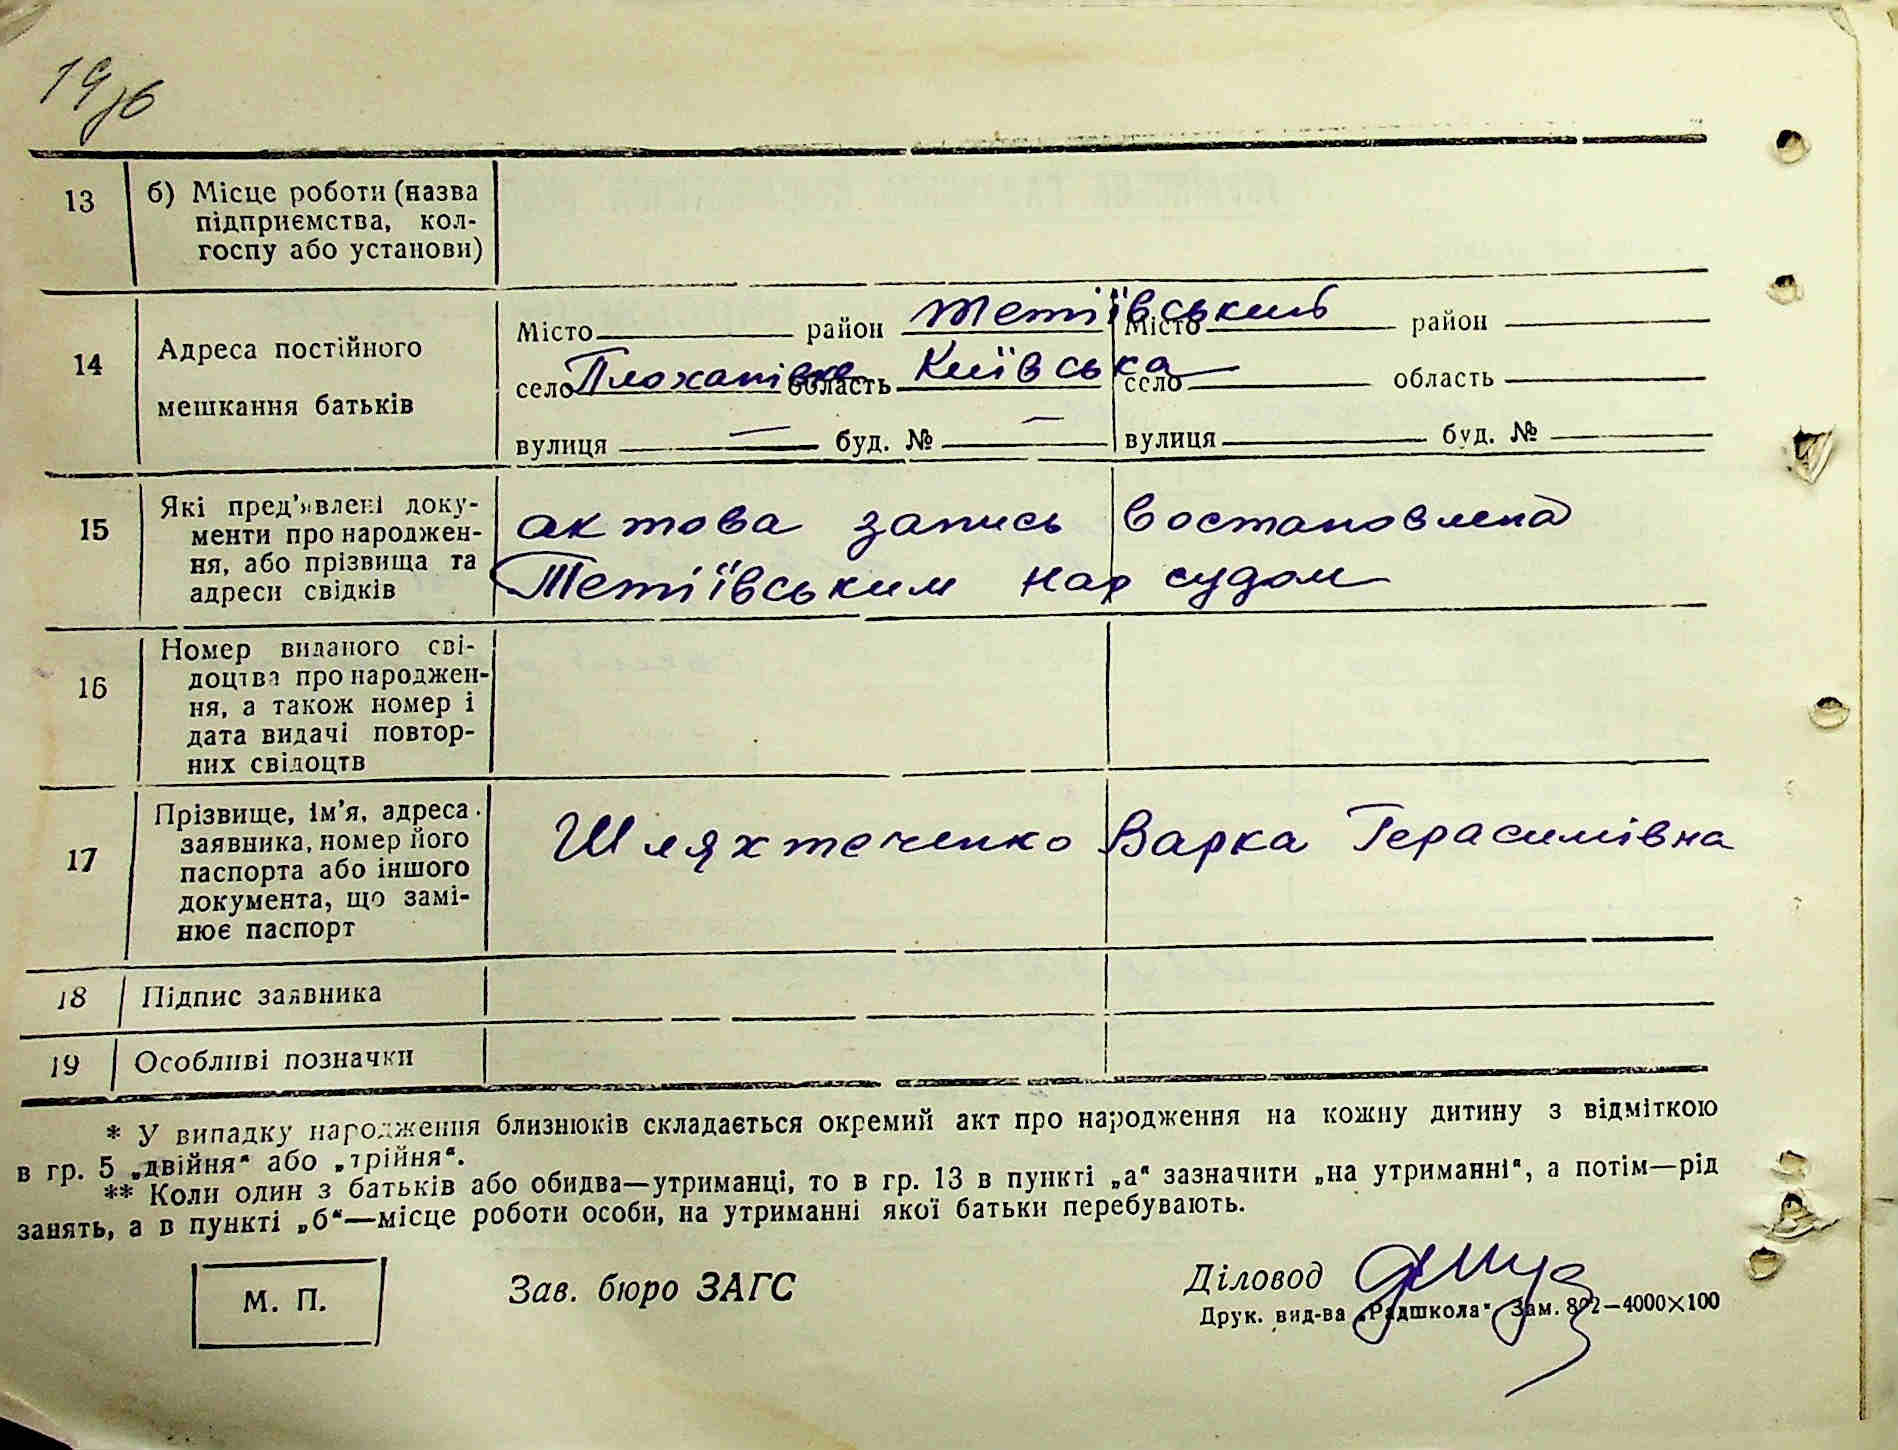 13 б) Місце роботи (назва
підприємства, кол-
госпу або установи)
14 Адреса постійного
мешкання батьків
Місто район Тетіївський Місто район
село Плоханівка область Київська село область
вулиця — буд. № — вулиця буд. №
15 Які пред'явлені доку-
менти про народжен-
ня, або прізвища та
адреси свідків
актова запись востановлена
Тетіївським нар судом
16 Номер виданого сві-
доцтва про народжен-
ня, а також номер і
дата видачі повтор-
них свідоцтв
17 Прізвище, ім'я, адреса
заявника, номер його
паспорта або іншого
документа, що замі-
нює паспорт
Шляхтеченко Варка Герасимівна
18 Підпис заявника
19 Особливі позначки
* У випадку народження близнюків складається окремий акт про народження на кожну дитину з відміткою
в гр. 5 „двійня“ або „трійня“.
** Коли один з батьків або обидва—утриманці, то в гр. 13 в пункті „а“ зазначити „на утриманні“, а потім—рід
занять, а в пункті „б“—місце роботи особи, на утриманні якої батьки перебувають.
М. П. Зав. бюро ЗАГС Діловод
Друк. вид-ва „Радшкола“ Зам. 802—4000×100